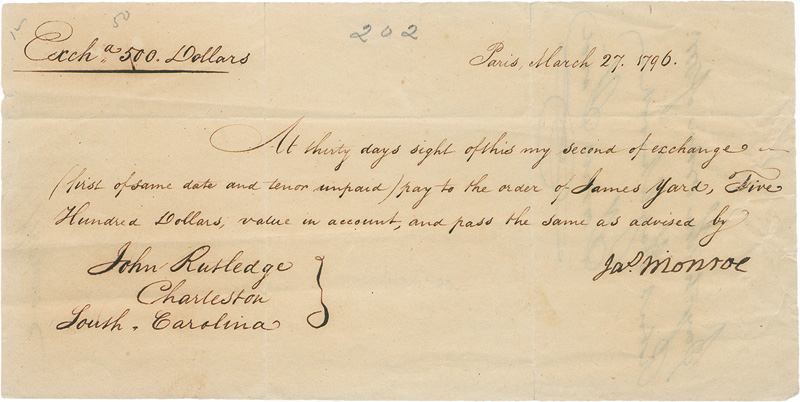 50
202
Excha 500. Dollars
Paris, March 27. 1796.
At thirty days sight of this my second of exchange
(first of same date and tenor unpaid) pay to the order of James Yard, Five
Hundred Dollars, value in account, and pass the same as advised by
Jas. Monroe
John Rutledge
Charleston
South. Carolina